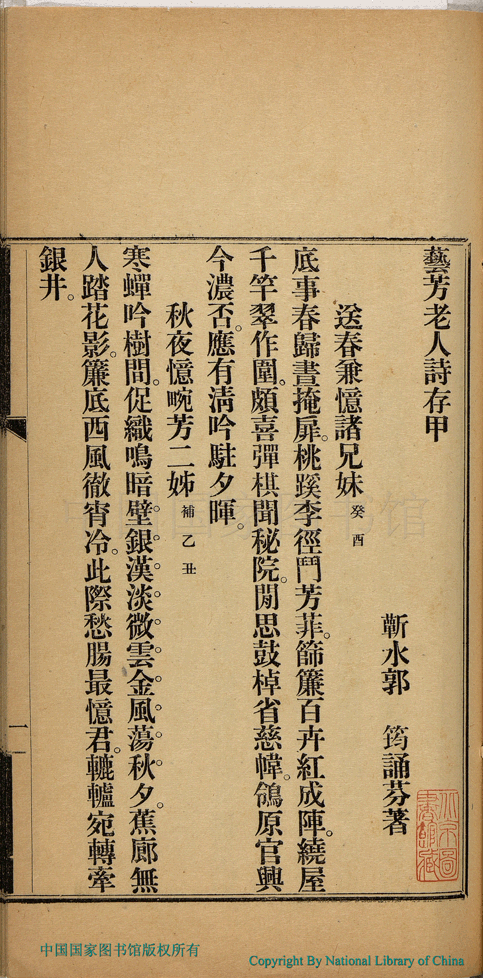 藝芳老人詩存甲
蘄水郭　筠誦芬著
送春兼憶諸兄妹 癸酉
底事春歸晝掩扉。桃蹊李徑鬥芳菲。篩簾百卉紅成陣。繞屋
千竿翠作圍。頗喜彈棋聞秘院。閒思鼓棹省慈幃。鴒原官興
今濃否。應有清吟駐夕暉。
秋夜憶畹芳二姊 補乙丑
寒蟬吟樹間。促織鳴暗壁。銀漢淡微雲。金風蕩秋夕。蕉廊無
人踏花影。簾底西風徹宵冷。此際愁腸最憶君。轆轤宛轉牽
銀井。
一
中国国家图书馆
中国国家图书馆版权所有
Copyright By National Library of China